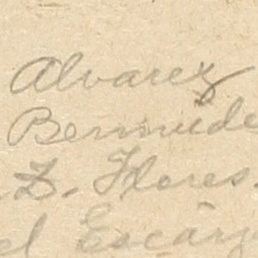 Alvarez
Bermude
Z. Flores.
el Escárz